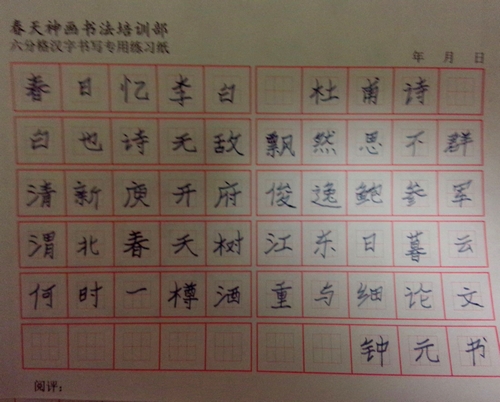 春天神画书法培训部
六分格汉字书写专用练习纸
年 月 日
春日忆李白 杜甫诗
白也诗无敌 飘然思不群
清新庾开府 俊逸鲍参军
渭北春天树 江东日暮云
何时一樽酒 重与细论文
钟元书
阅评：